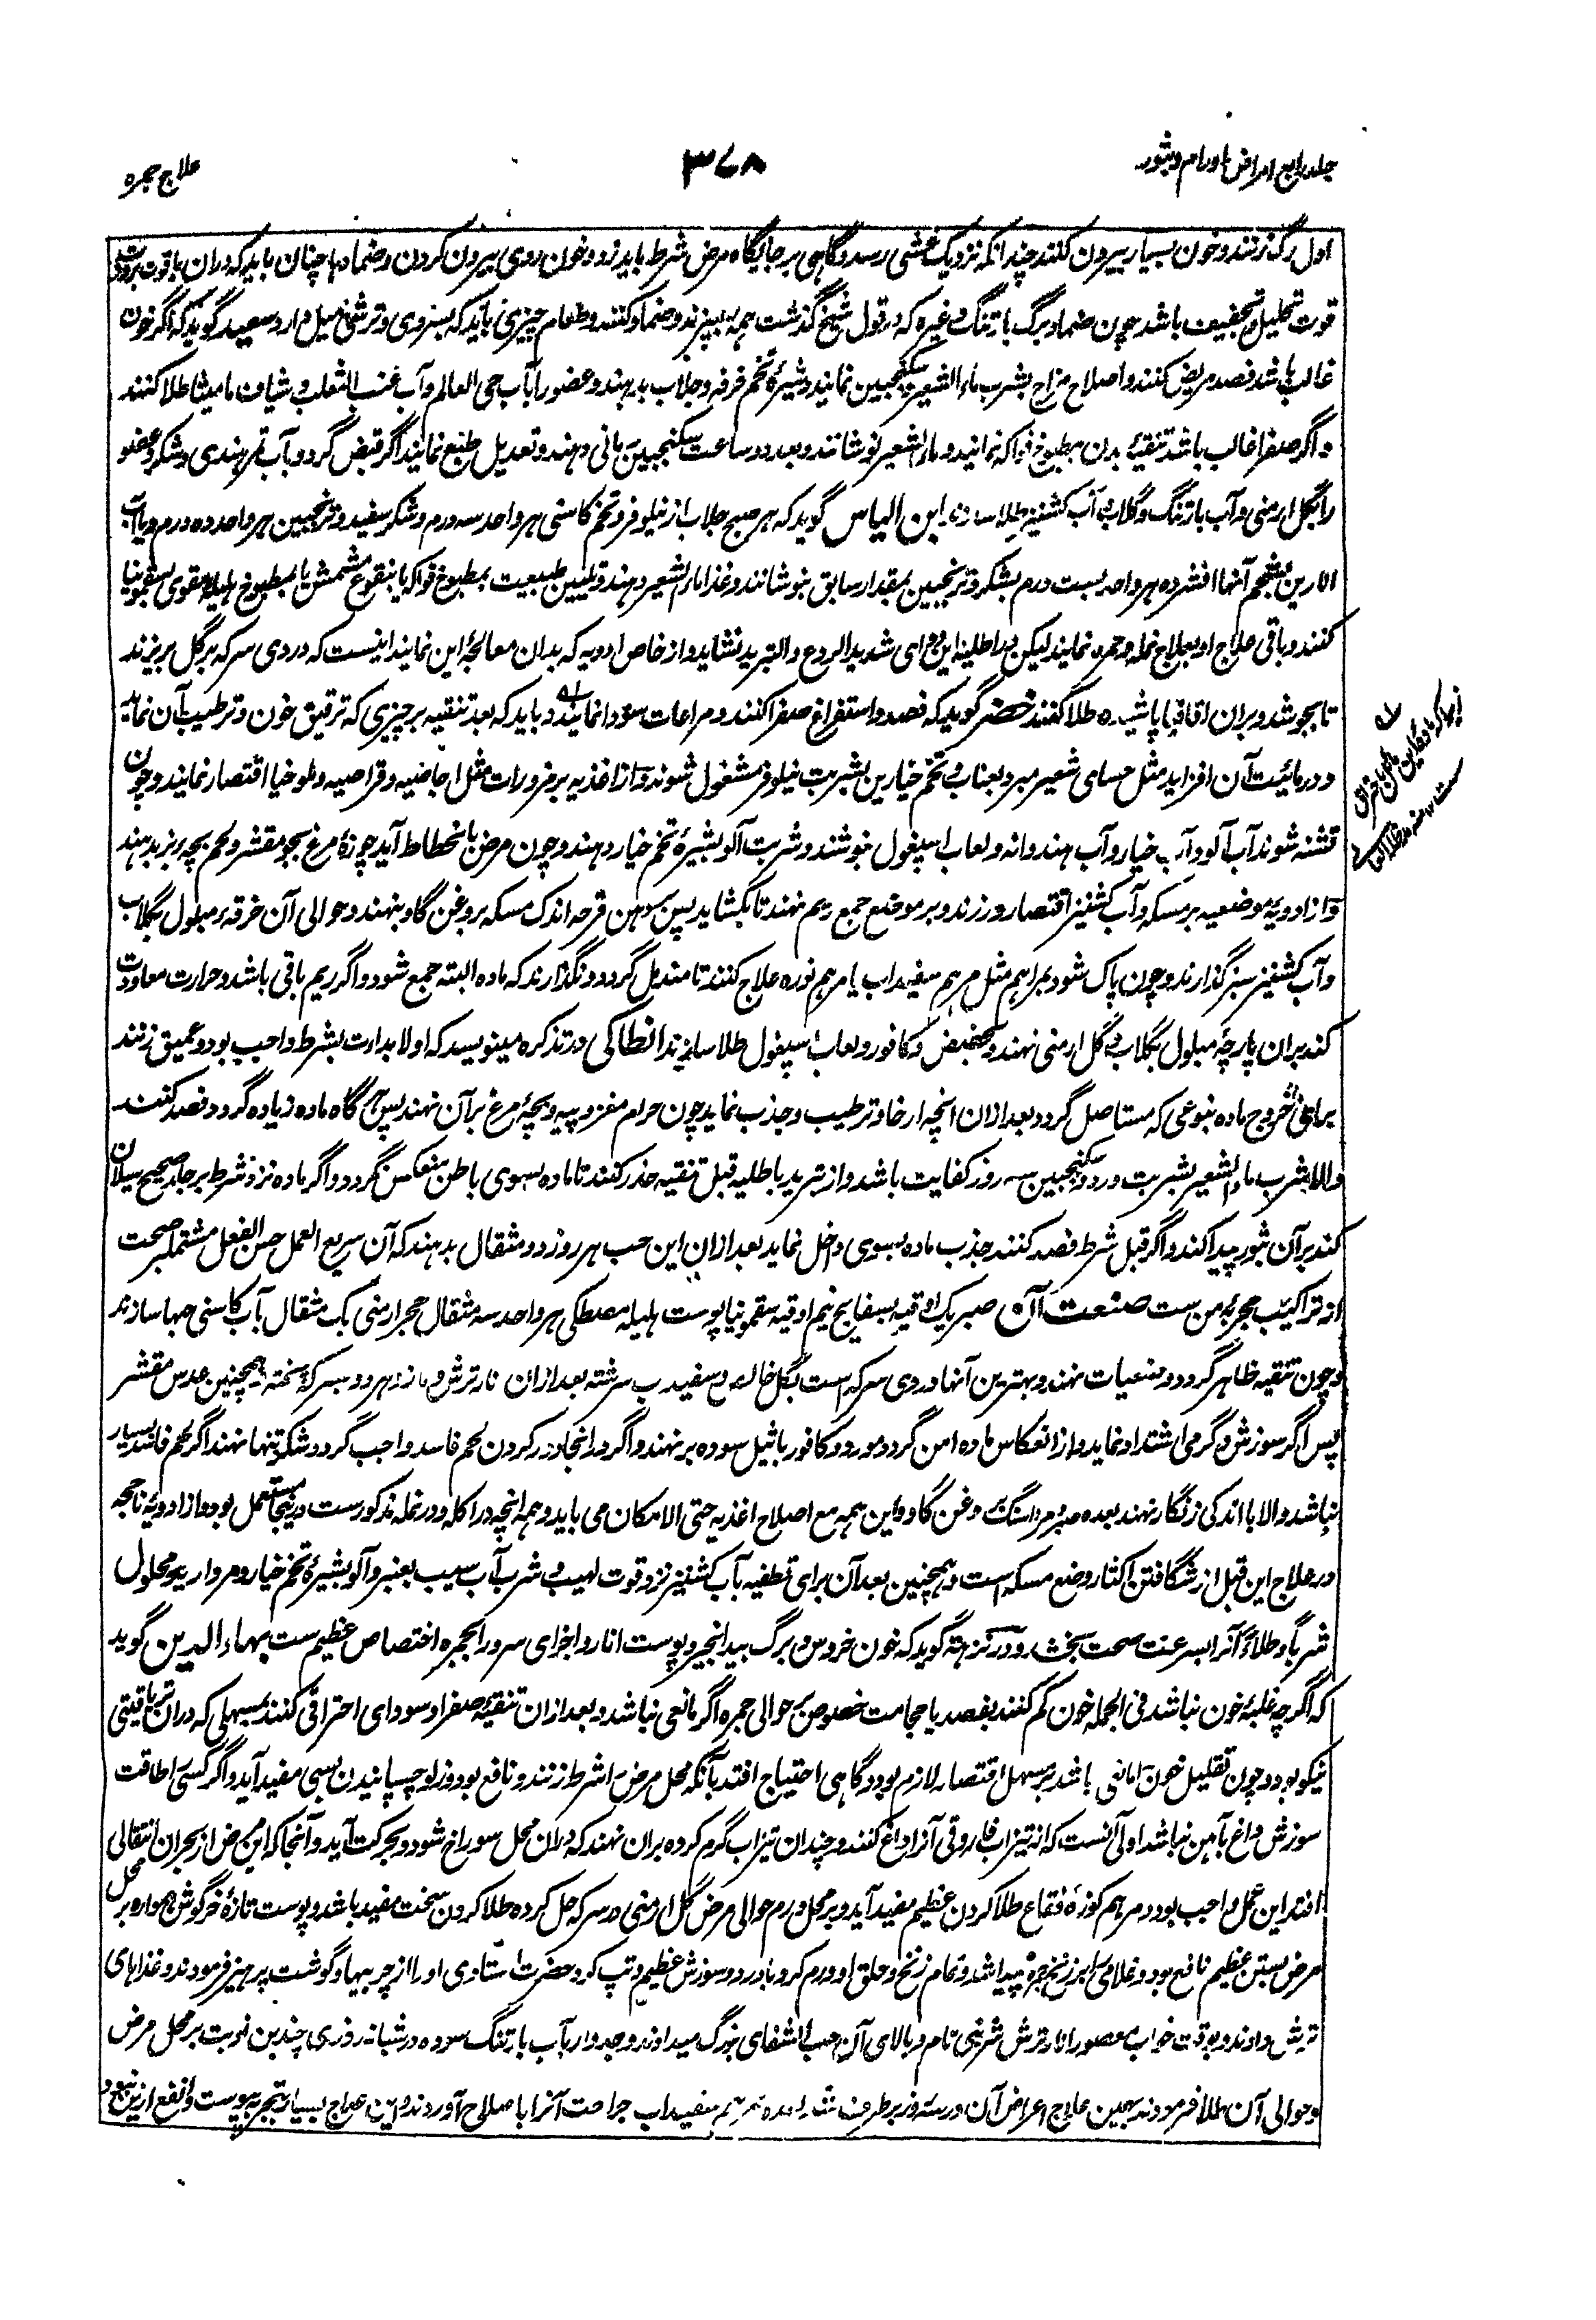 جلد رابع امراض اورام و بثور
۳۷۸
علاج جمره
اول رگ زنند و خون بسیار بیرون کنند چندانکه نزدیک غشی رسد و گاهی بر جایگاه مرض شرط باید زد و خون ردی بیرون کردن و ضمادها چنان باید که دران با قوت برودت
قوت تحلیل و تجفیف باشد چون ضماد برگ بارتنگ و غیره که در قول شیخ گذشت همه بپزند و ضماد کنند و طعام چیزی باید که بسردی و ترشی میل دارد سعید گوید که اگر خون
غالب باشد فصد مریض کنند و اصلاح مزاج بشرب ماء الشعیر و سکنجبین نمایند و شیره تخم خرفه و جلاب بدهند و عضو را بآب حی العالم و آب عنب الثعلب و شیاف مامیثا طلا کنند
و اگر صفرا غالب باشد تنقیه بدن بمطبوخ فواکه نمایند و ماء الشعیر نوشانند و بعد دو ساعت سکنجبین بآنی دهند و تعدیل طبع نمایند اگر قبض گردد بآب تمر هندی و شکر و عضو
را بگل ارمنی و آب بارتنگ و گلاب و آب کشنیز طلا سازند ابن الیاس گوید که هر صبح جلاب از نیلوفر و تخم کاسنی هر واحد سه درم و شکر سفید و ترنجبین هر واحد ده درم و یا آب
انارین بشحم آنها افشرده هر واحد بست درم بشکر و ترنجبین بمقدار سابق بنوشانند و غذا ماء الشعیر دهند و تلیین طبیعت بمطبوخ فواکه یا بنقوع مشمش یا بمطبوخ هلیله مقوی بسقمونیا
کنند و باقی علاج او بعلاج نمله و جمره نمایند لیکن در اطلیه این دوای شدید الردع و التبرید نشاید و از خاص ادویه که بدان معالجه این نمایند اینست که دردی سرکه بر گل بریزند
تا بجوشد و بران اقاقیا پاشیده طلا کنند خضر گوید که فصد و استفراغ صفرا کنند و مراعات سودا نمایند و باید که بعد تنقیه بر چیزی که ترقیق خون و ترطیب آن نماید
و در مائیت آن افزاید مثل حسای شعیر مبرد بعناب و تخم خیارین بشربت نیلوفر مشغول شوند و از اغذیه بر مزورات مثل اجاصیه و قراصیه و ملوخیا اقتصار نمایند و چون
تشنه شوند آب آلو و آب خیار و آب هندوانه و لعاب اسپغول بنوشند و شربت آلو بشیره تخم خیار دهند و چون مرض بانحطاط آید چوزه مرغ بجو مقشر و لحم بچه بز بدهند
و از ادویه موضعیه بر مسکه و آب کشنیز اقتصار ورزند و بر موضع جمع ریم نهند تا بگشاید پس بر دهن قرحه اندک مسکه بروغن گاو بنهند و حوالی آن خرقه مبلول بگلاب
و آب کشنیز سبز گذارند و چون پاک شود بمراهم مثل مرهم سفیداب یا مرهم نوره علاج کنند تا مندمل گردد و نگذارند که ماده البته جمع شود و اگر ریم باقی باشد و حرارت معاودت
کند بران پارچه مبلول بگلاب و گل ارمنی نهند و بحضض و کافور و لعاب اسپغول طلا سازند انطاکی در تذکره مینویسد که اولا بداءت بشرط واجب بود و عمیق زنند
برای خروج ماده بنوعی که مستاصل گردد بعد ازان آنچه ارخا و ترطیب و جذب نماید چون حرام مغز و پیه و بچه مرغ بر آن نهند پس هر گاه ماده زیاده گردد فصد کنند
والا بشرب ماء الشعیر بشربت ورد و سکنجبین سه روز کفایت باشد و از تبرید باطلیه قبل تنقیه حذر کنند تا ماده بسوی باطن منعکس نگردد و اگر ماده نزد شرط بر جلد صحیح سیلان
کند بر آن بثور پیدا کند و اگر قبل شرط فصد کنند جذب ماده بسوی داخل نماید بعد ازان این حب هر روز دو مثقال بدهند که آن سریع العمل حسن الفعل مشتمل بر صحت
از تراکیب مجربه من ست صنعت آن صبر یک اوقیه بسفایج نیم اوقیه سقمونیا پوست هلیله مصطکی هر واحد سه مثقال حجر ارمنی یک مثقال بآب کاسنی حبها سازند
و چون تنقیه ظاهر گردد وضعیات نهند و بهترین آنها دردی سرکه است بگل خالص و سفیداب سرشته بعد ازان انار ترش و مازو هر دو بسرکه پخته و همچنین عدس مقشر
پس اگر سوزش و گرمی اشتداد نماید و از انعکاس ماده امن گردد مورد و کافور بانیل سوده بر نهند و اگر در انجا دور کردن لحم فاسد واجب گردد شکر تنها نهند اگر لحم فاسد بسیار
نباشد والا با اندکی زنگار نهند بعده صبر و مرداسنگ و روغن گاو و این همه مع اصلاح اغذیه حتی الامکان می باید و همه آنچه در آکله و در نمله مذکورست در ینجا مستعمل بود و از ادویه ناجحه
در علاج این قبل از شگافتن اکثار وضع مسکه است و همچنین بعد آن برای تطفیه بآب کشنیز نزد قوت لهیب و شرب آب سیب بعنبر و آلو بشیره تخم خیار و مروارید محلول
شربا و طلاء آنرا بسرعت صحت بخشد و در نزهته گوید که خون خروس و برگ بید انجیر و پوست انار و اجزای سرو را بجمره اختصاص عظیم ست بهاء الدین گوید
که اگر چه غلبه خون نباشد فی الجمله خون کم کنند بفصد یا حجامت خصوص بر حوالی جمره اگر مانعی نباشد و بعد ازان تنقیه صفرا و سودای احتراقی کنند بمسهلی که دران تریاقیتی
نیکو بود و چون تقلیل خون را مانعی باشد بر مسهل اقتصار لازم بود و گاهی احتیاج افتد بآنکه محل مرض را شرط زنند و نافع بود و زلو چسپانیدن بسی مفید آید و اگر کسی را طاقت
سوزش داغ بآهن نباشد اولی آنست که از تیزاب فاروقی آنرا داغ کنند و چندان تیزاب گرم کرده بران نهند که دران محل سوراخ شود و بحرکت آید و آنجا که این مرض از بحران انتقالی
افتد این عمل واجب بود و مرهم کوزه فقاع طلا کردن عظیم مفید آید و بر محل ورم حوالی مرض گل ارمنی در سرکه حل کرده طلا کردن سخت مفید باشد و پوست تازه خرگوش همواره بر محل
مرض بستن عظیم نافع بود و غلامی را بر زنخ جمره پیدا شد و تمام زنخ و حلق او ورم کرد با درد و سوزش عظیم و تپ کرد حضرت استادی او را از چربیها و گوشت پرهیز فرمودند و غذاهای
ترش دادند و بوقت خواب معصور انار ترش شربتی تام و بالای آن حب الشفای بزرگ میدادند و جدوار بآب بارتنگ سوده در شبانه روزی چندین نوبت بر محل مرض
و حوالی آن طلا فرمودند بهمین علاج اعراض آن در سه روز برطرف شد و بعده بمرهم سفیداب جراحت آنرا باصلاح آوردند و این علاج بسیار بتجربه پیوست و انفع ازین